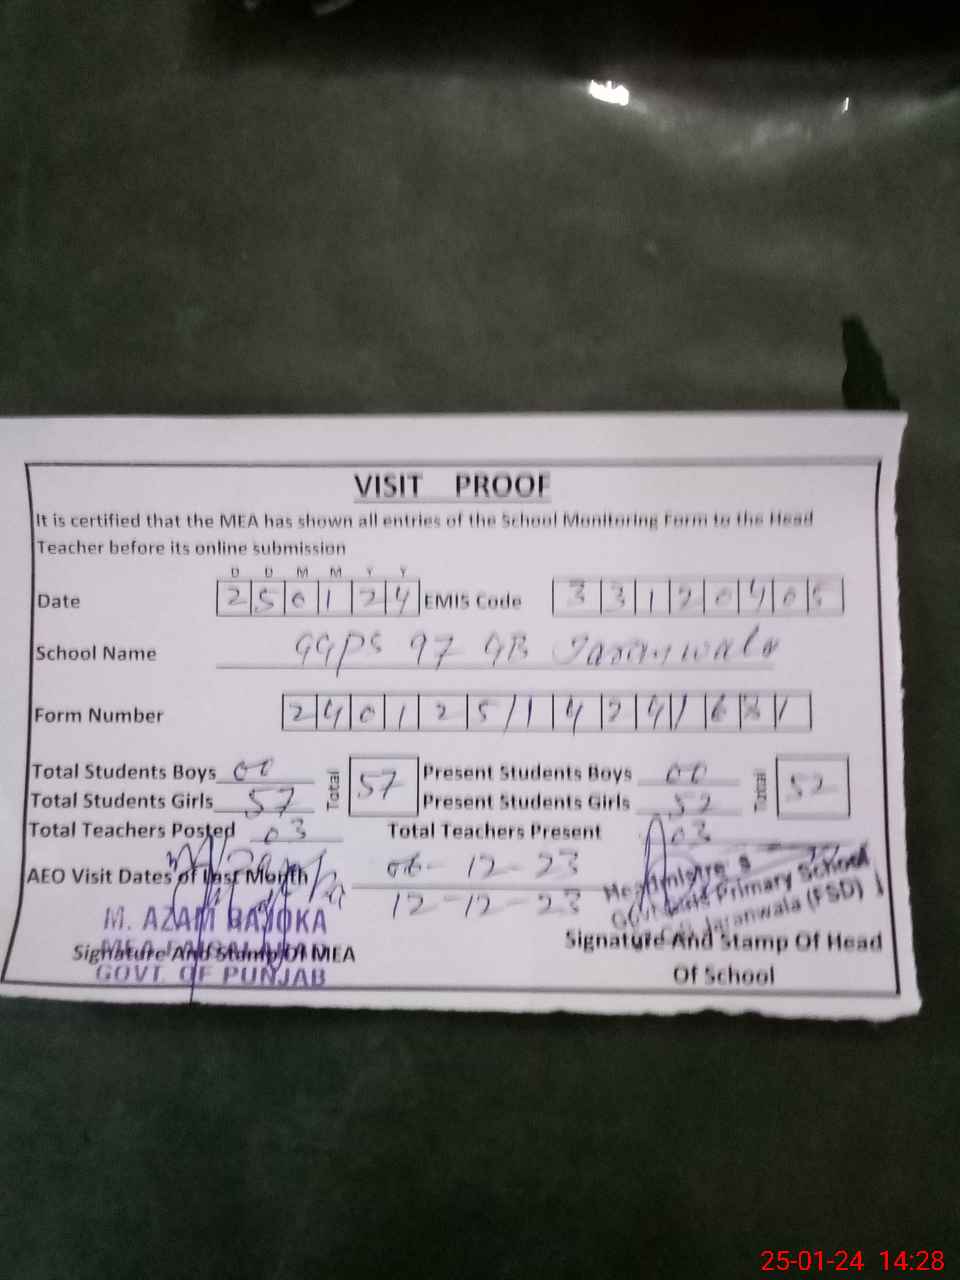 VISIT PROOF
It is certified that the MEA has shown all entries of the School Monitoring Form to the Head
Teacher before its online submission
D D M M Y Y
Date 2 5 0 1 2 4 EMIS Code 3 3 1 2 0 4 0 5
School Name GGPS 97 GB Jaranwala
Form Number 2 4 0 1 2 5 / 1 4 2 4 / 6
Total Students Boys 00 Total 57 Present Students Boys 00 Total 52
Total Students Girls 57 Present Students Girls 52
Total Teachers Posted 03 Total Teachers Present 03
AEO Visit Dates of Last Month 06-12-23
12-12-23
Headmistress
Govt. Girls Primary School
Jaranwala (FSD)
M. AZAM BAJOKA
MEA
GOVT. OF PUNJAB
Signature And Stamp Of MEA
Signature And Stamp Of Head
Of School
25-01-24 14:28